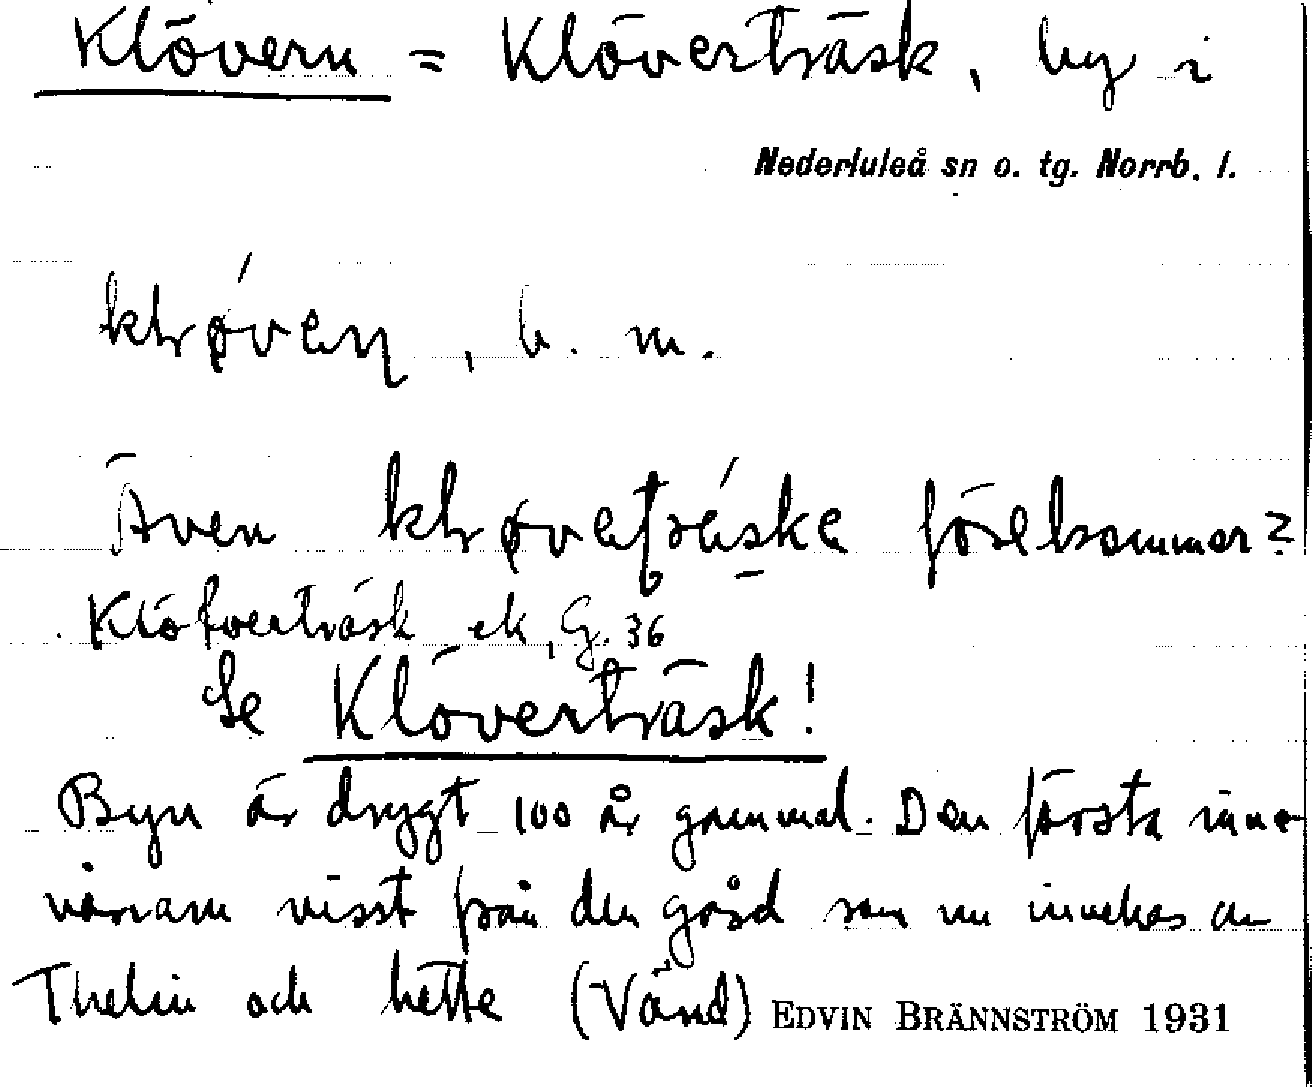 Klövern = Klöverträsk, by i
Nederluleå sn o. tg. Norrb. l.
b. m.
Även förekommer?
Klöfverträsk ek, G. 36
Se Klöverträsk!
Byn är drygt 100 år gammal. Den första inne-
vånaren visst från den gård som nu innehas av
Thelin och hette (Vänd) EDVIN BRÄNNSTRÖM 1931